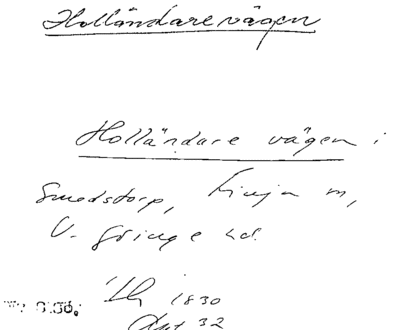 Holländarevägen
Holländare vägen i
Smedstorp, Linja m,
V. Gringe hd.
1830
Akt 32